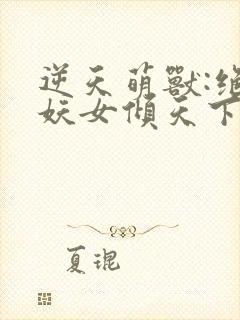 逆天萌獸:绝
妖女傾天下
夏琨